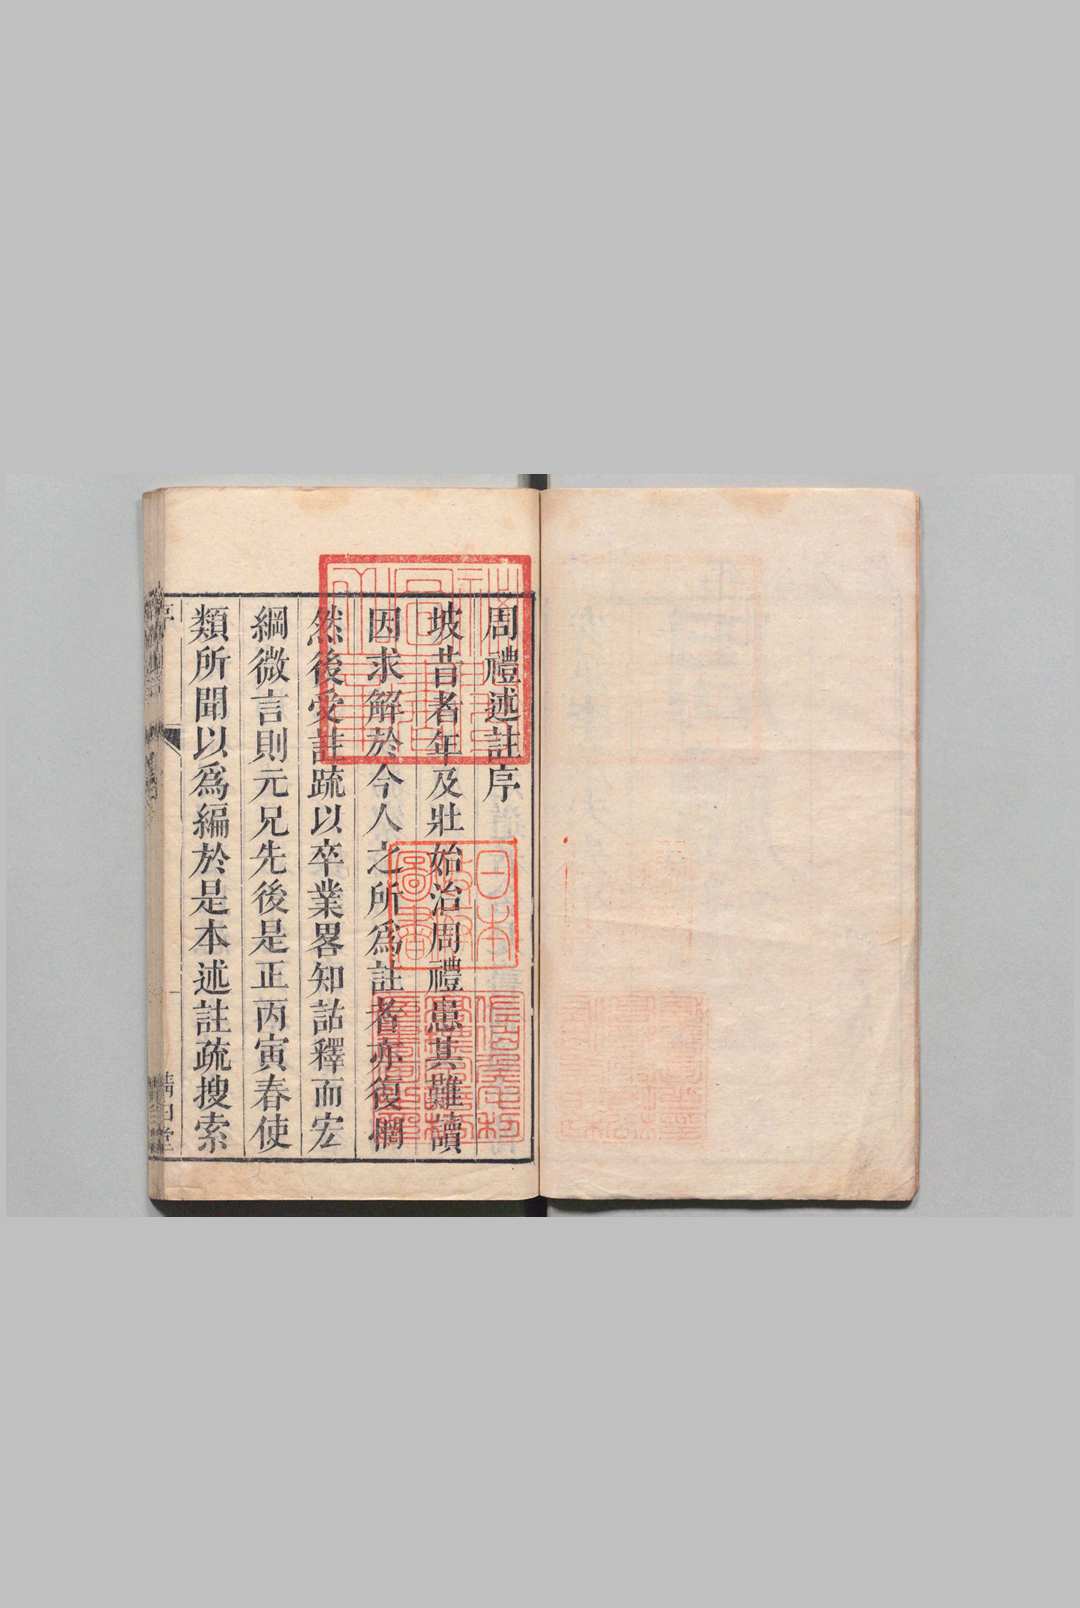 周禮述註序
坡昔者年及壯始治周禮患其難讀
因求解於今人之所爲註者亦復惘
然後受註疏以卒業畧知詁釋而宏
綱微言則元兄先後是正丙寅春使
類所聞以爲編於是本述註疏搜索
序
清白堂
日本
政府
圖書